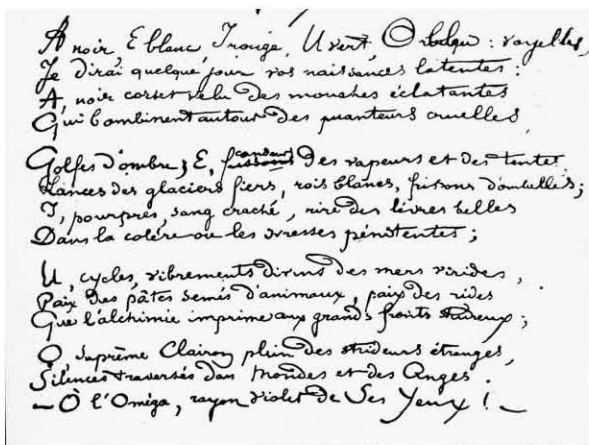 A noir, E blanc, I rouge, U vert, O bleu : voyelles,
Je dirai quelque jour vos naissances latentes :
A, noir corset velu des mouches éclatantes
Qui bombinent autour des puanteurs cruelles,
Golfes d'ombre ; E, candeurs des vapeurs et des tentes
Lances des glaciers fiers, rois blancs, frissons d'ombelles ;
I, pourpres, sang craché, rire des lèvres belles
Dans la colère ou les ivresses pénitentes ;
U, cycles, vibrements divins des mers virides,
Paix des pâtis semés d'animaux, paix des rides
Que l'alchimie imprime aux grands fronts studieux ;
O, suprême Clairon plein des strideurs étranges,
Silences traversés des Mondes et des Anges :
— Ô l'Oméga, rayon violet de Ses Yeux ! —